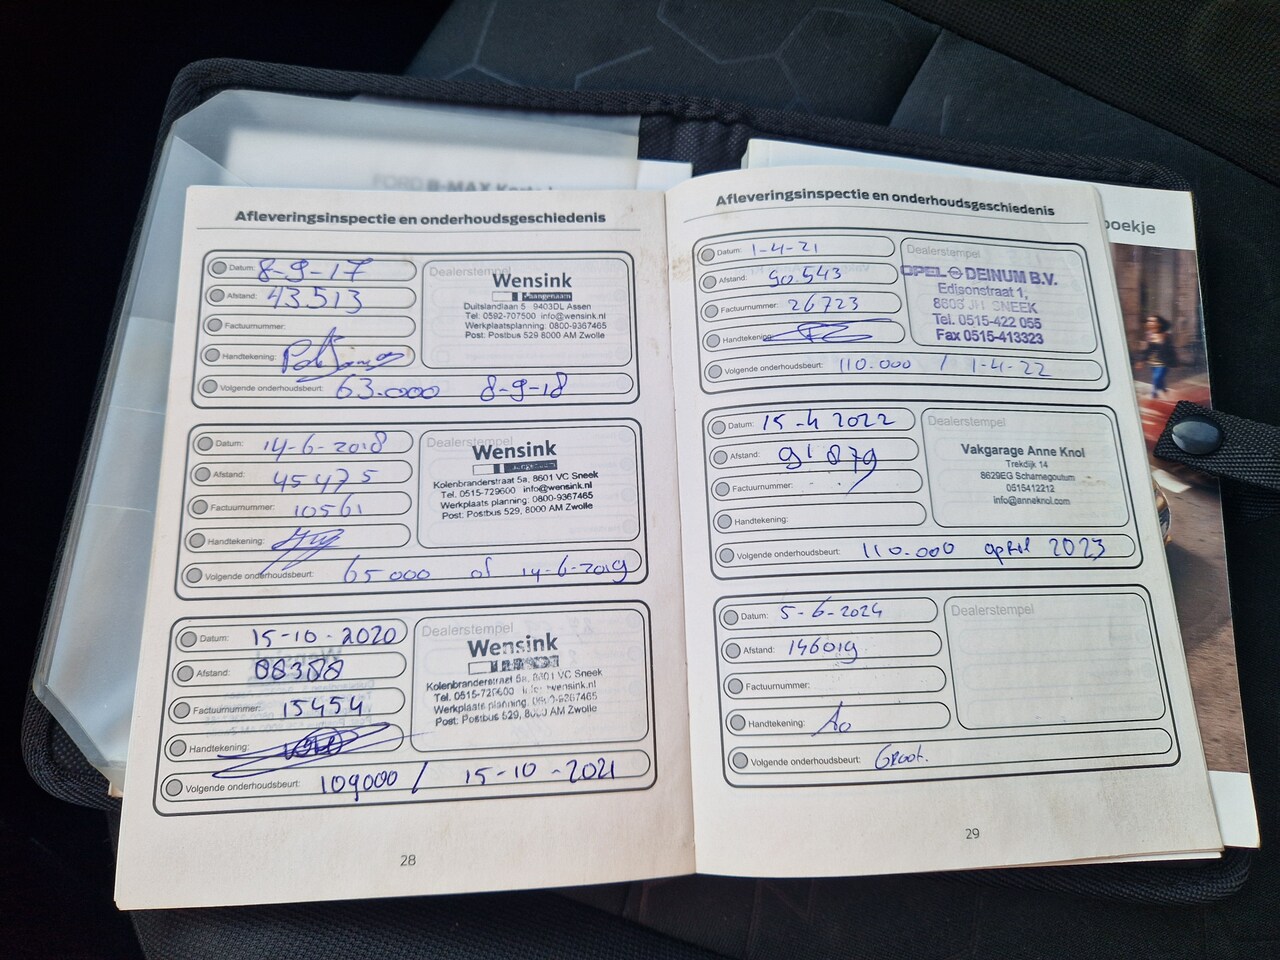 FORD B-MAX
oekje
Afleveringsinspectie en onderhoudsgeschiedenis
Datum: 8-9-17
Afstand: 43.513
Factuurnummer:
Handtekening:
Volgende onderhoudsbeurt: 63.000 8-9-18
Dealerstempel
Wensink
Duitslandlaan 5 9403DL Assen
Tel: 0592-707500 info@wensink.nl
Werkplaatsplanning: 0800-9367465
Post: Postbus 529 8000 AM Zwolle
Datum: 14-6-2018
Afstand: 45475
Factuurnummer: 10561
Handtekening:
Volgende onderhoudsbeurt: 65000 of 14-6-2019
Dealerstempel
Wensink
Kolenbranderstraat 5a, 8601 VC Sneek
Tel. 0515-729600 info@wensink.nl
Werkplaats planning: 0800-9367465
Post: Postbus 529, 8000 AM Zwolle
Datum: 15-10-2020
Afstand: 88388
Factuurnummer: 15454
Handtekening:
Volgende onderhoudsbeurt: 109000 / 15-10-2021
Dealerstempel
Wensink
Kolenbranderstraat 5a, 8601 VC Sneek
Tel. 0515-729600 wensink.nl
Werkplaats planning: 0800-9367465
Post: Postbus 529, 8000 AM Zwolle
28
Afleveringsinspectie en onderhoudsgeschiedenis
Datum: 1-4-21
Afstand: 90.543
Factuurnummer: 26723
Handtekening:
Volgende onderhoudsbeurt: 110.000 / 1-4-22
Dealerstempel
OPEL DEINUM B.V.
Edisonstraat 1,
8603 JH SNEEK
Tel. 0515-422 055
Fax 0515-413323
Datum: 15-4 2022
Afstand: 91879
Factuurnummer:
Handtekening:
Volgende onderhoudsbeurt: 110.000 april 2023
Dealerstempel
Vakgarage Anne Knol
Trekdijk 14
8629EG Scharnegoutum
0515412212
info@anneknol.com
Datum: 5-6-2024
Afstand: 146019
Factuurnummer:
Handtekening:
Volgende onderhoudsbeurt: Groot.
Dealerstempel
29